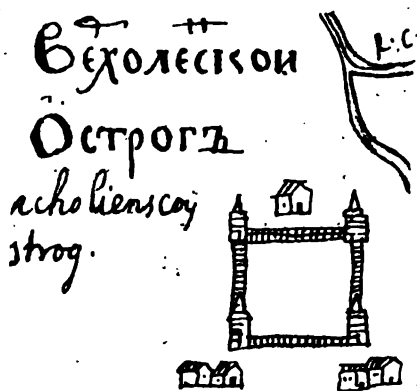 Вехолескои
Острогъ
acholienscoy
strog.
р. С